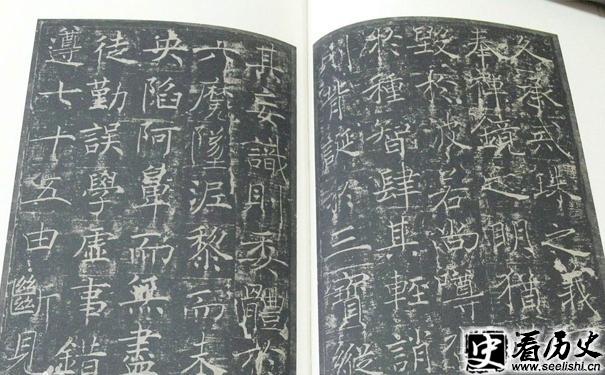 奉戒珠之義
奉禪鏡之明猶
毀於波若尚蹲
於種智肆其輕誚
則背誕於三寶縱
其妄識則受體於
六魔墜泥黎而未
央陷阿鼻而無盡
徒勤誤學虛事錯
遵七十五由斷見
史 看历史
www.seelishi.cn